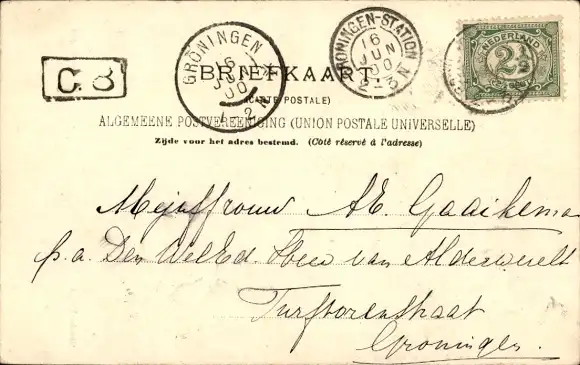 C. B
GRONINGEN
16
JUN
00
1-2N
GRONINGEN-STATION
16
JUN
00
2-3N
NEDERLAND
2½
BRIEFKAART
(CARTE POSTALE)
ALGEMEENE POSTVEREENIGING (UNION POSTALE UNIVERSELLE)
Zijde voor het adres bestemd. (Côté réservé à l'adresse)
Mejuffrouw A.E. Gaaikema
p.a. Den WelEd. Heer van Alderwerelt
Turftorenstraat
Groningen.